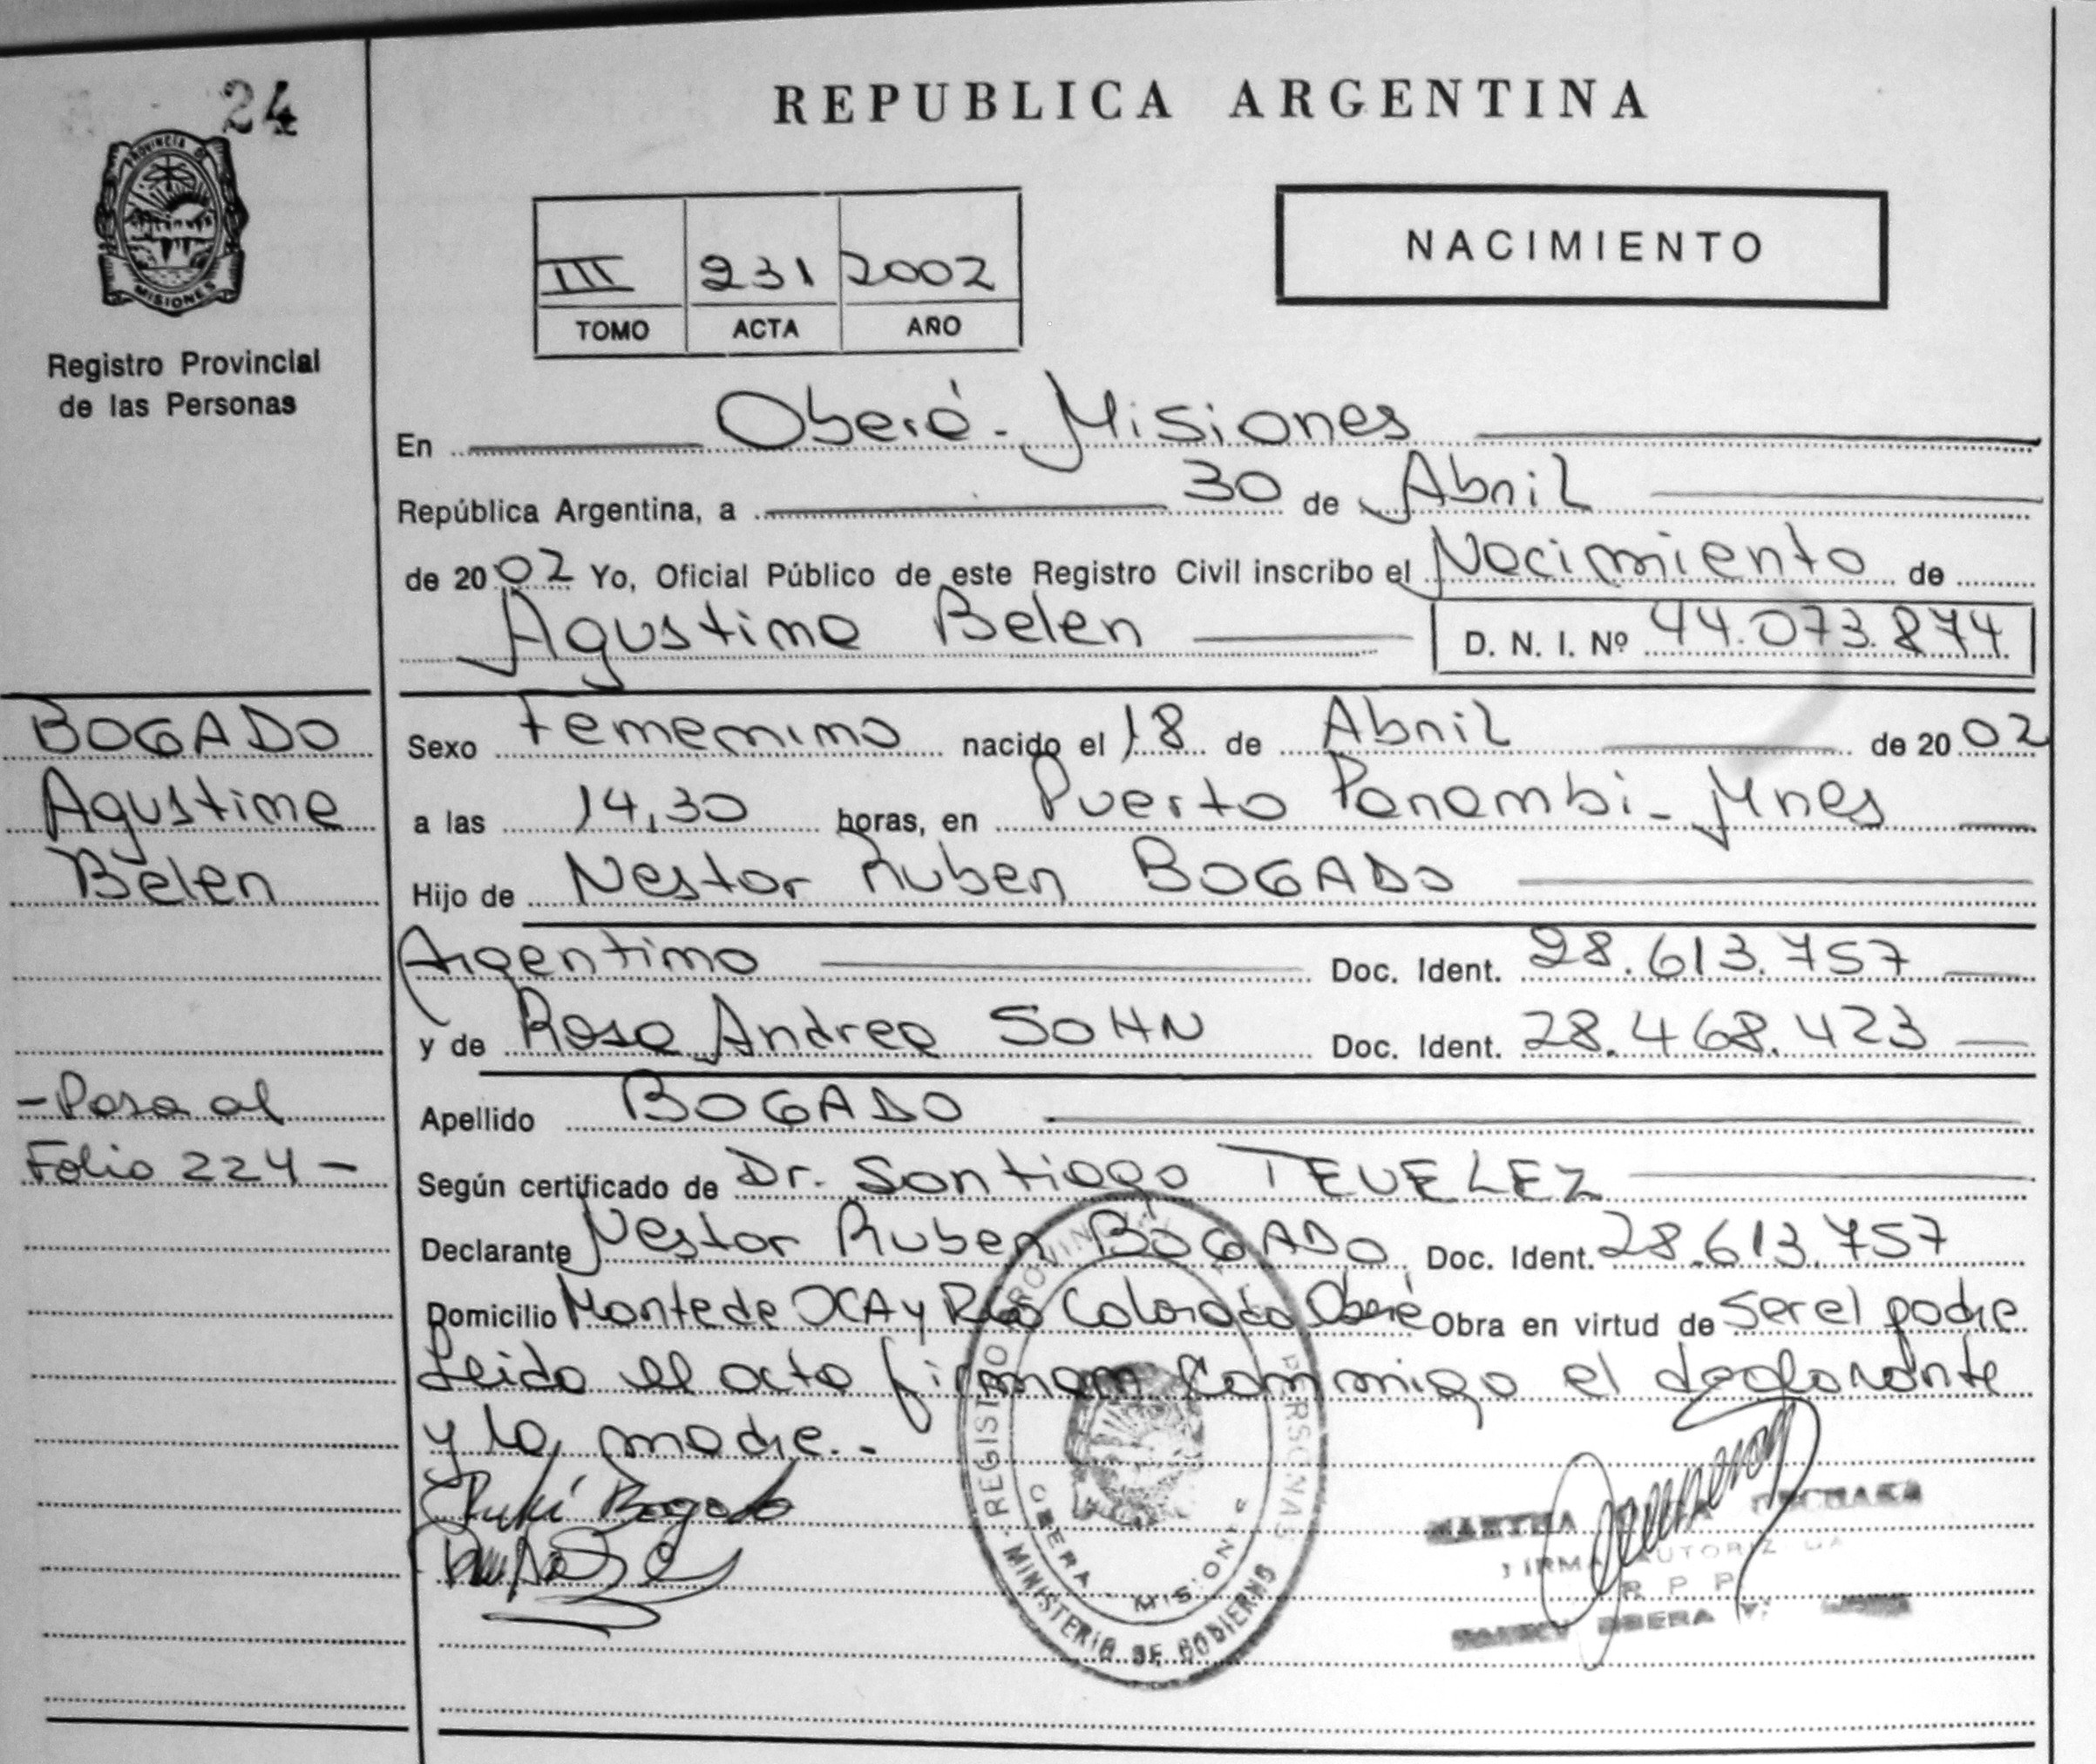 24
PROVINCIA DE
MISIONES
Registro Provincial
de las Personas
REPUBLICA ARGENTINA
III 231 2002
TOMO ACTA AÑO
NACIMIENTO
En Oberá - Misiones
República Argentina, a 30 de Abril
de 2002 Yo, Oficial Público de este Registro Civil inscribo el Nacimiento de
Agustina Belen D. N. I. Nº 44.073.874
BOGADO
Agustina
Belen
- Pasa al
Folio 224 -
Sexo Femenino nacido el 18 de Abril de 2002
a las 14,30 horas, en Puerto Panambi - Mnes
Hijo de Nestor Ruben BOGADO
Argentino Doc. Ident. 28.613.757
y de Rosa Andrea SOHN Doc. Ident. 28.468.423
Apellido BOGADO
Según certificado de Dr. Santiago TEVELEZ
Declarante Nestor Ruben BOGADO Doc. Ident. 28.613.757
Domicilio Montede OCA y Rio Colorado Oberá Obra en virtud de Ser el padre
Leido el acta firman conmigo el declarante
y la madre. -
Bogado
REGISTRO PROVINCIAL DE LAS PERSONAS
OBERA - MISIONES
MINISTERIO DE GOBIERNO
MARTHA
FIRMA AUTORIZADA
R P P
OBERA